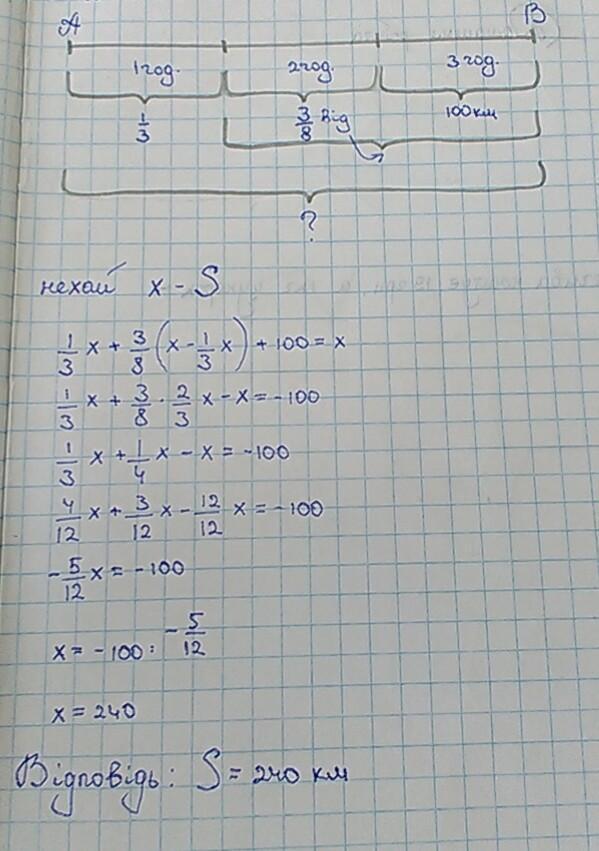 A B
1 год. 2 год. 3 год.
1/3 3/8 від 100 км
?
нехай x - S
1/3 x + 3/8 (x - 1/3 x) + 100 = x
1/3 x + 3/8 · 2/3 x - x = -100
1/3 x + 1/4 x - x = -100
4/12 x + 3/12 x - 12/12 x = -100
- 5/12 x = -100
x = -100 : - 5/12
x = 240
Відповідь: S = 240 км